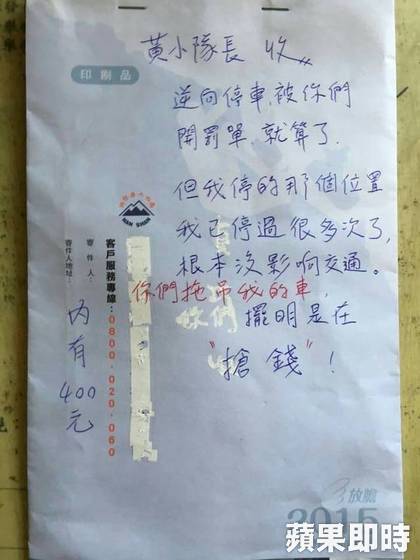 黃小隊長 收
印刷品
逆向停車,被你們
開罰單,就算了,
但我停的那個位置
我已停過很多次了,
根本沒影响交通。
你們拖吊我的車,
擺明是在
"搶錢"!
客戶服務專線:0800-020-060
寄件人:
寄件人地址:
內有400元
放膽
2015
蘋果即時